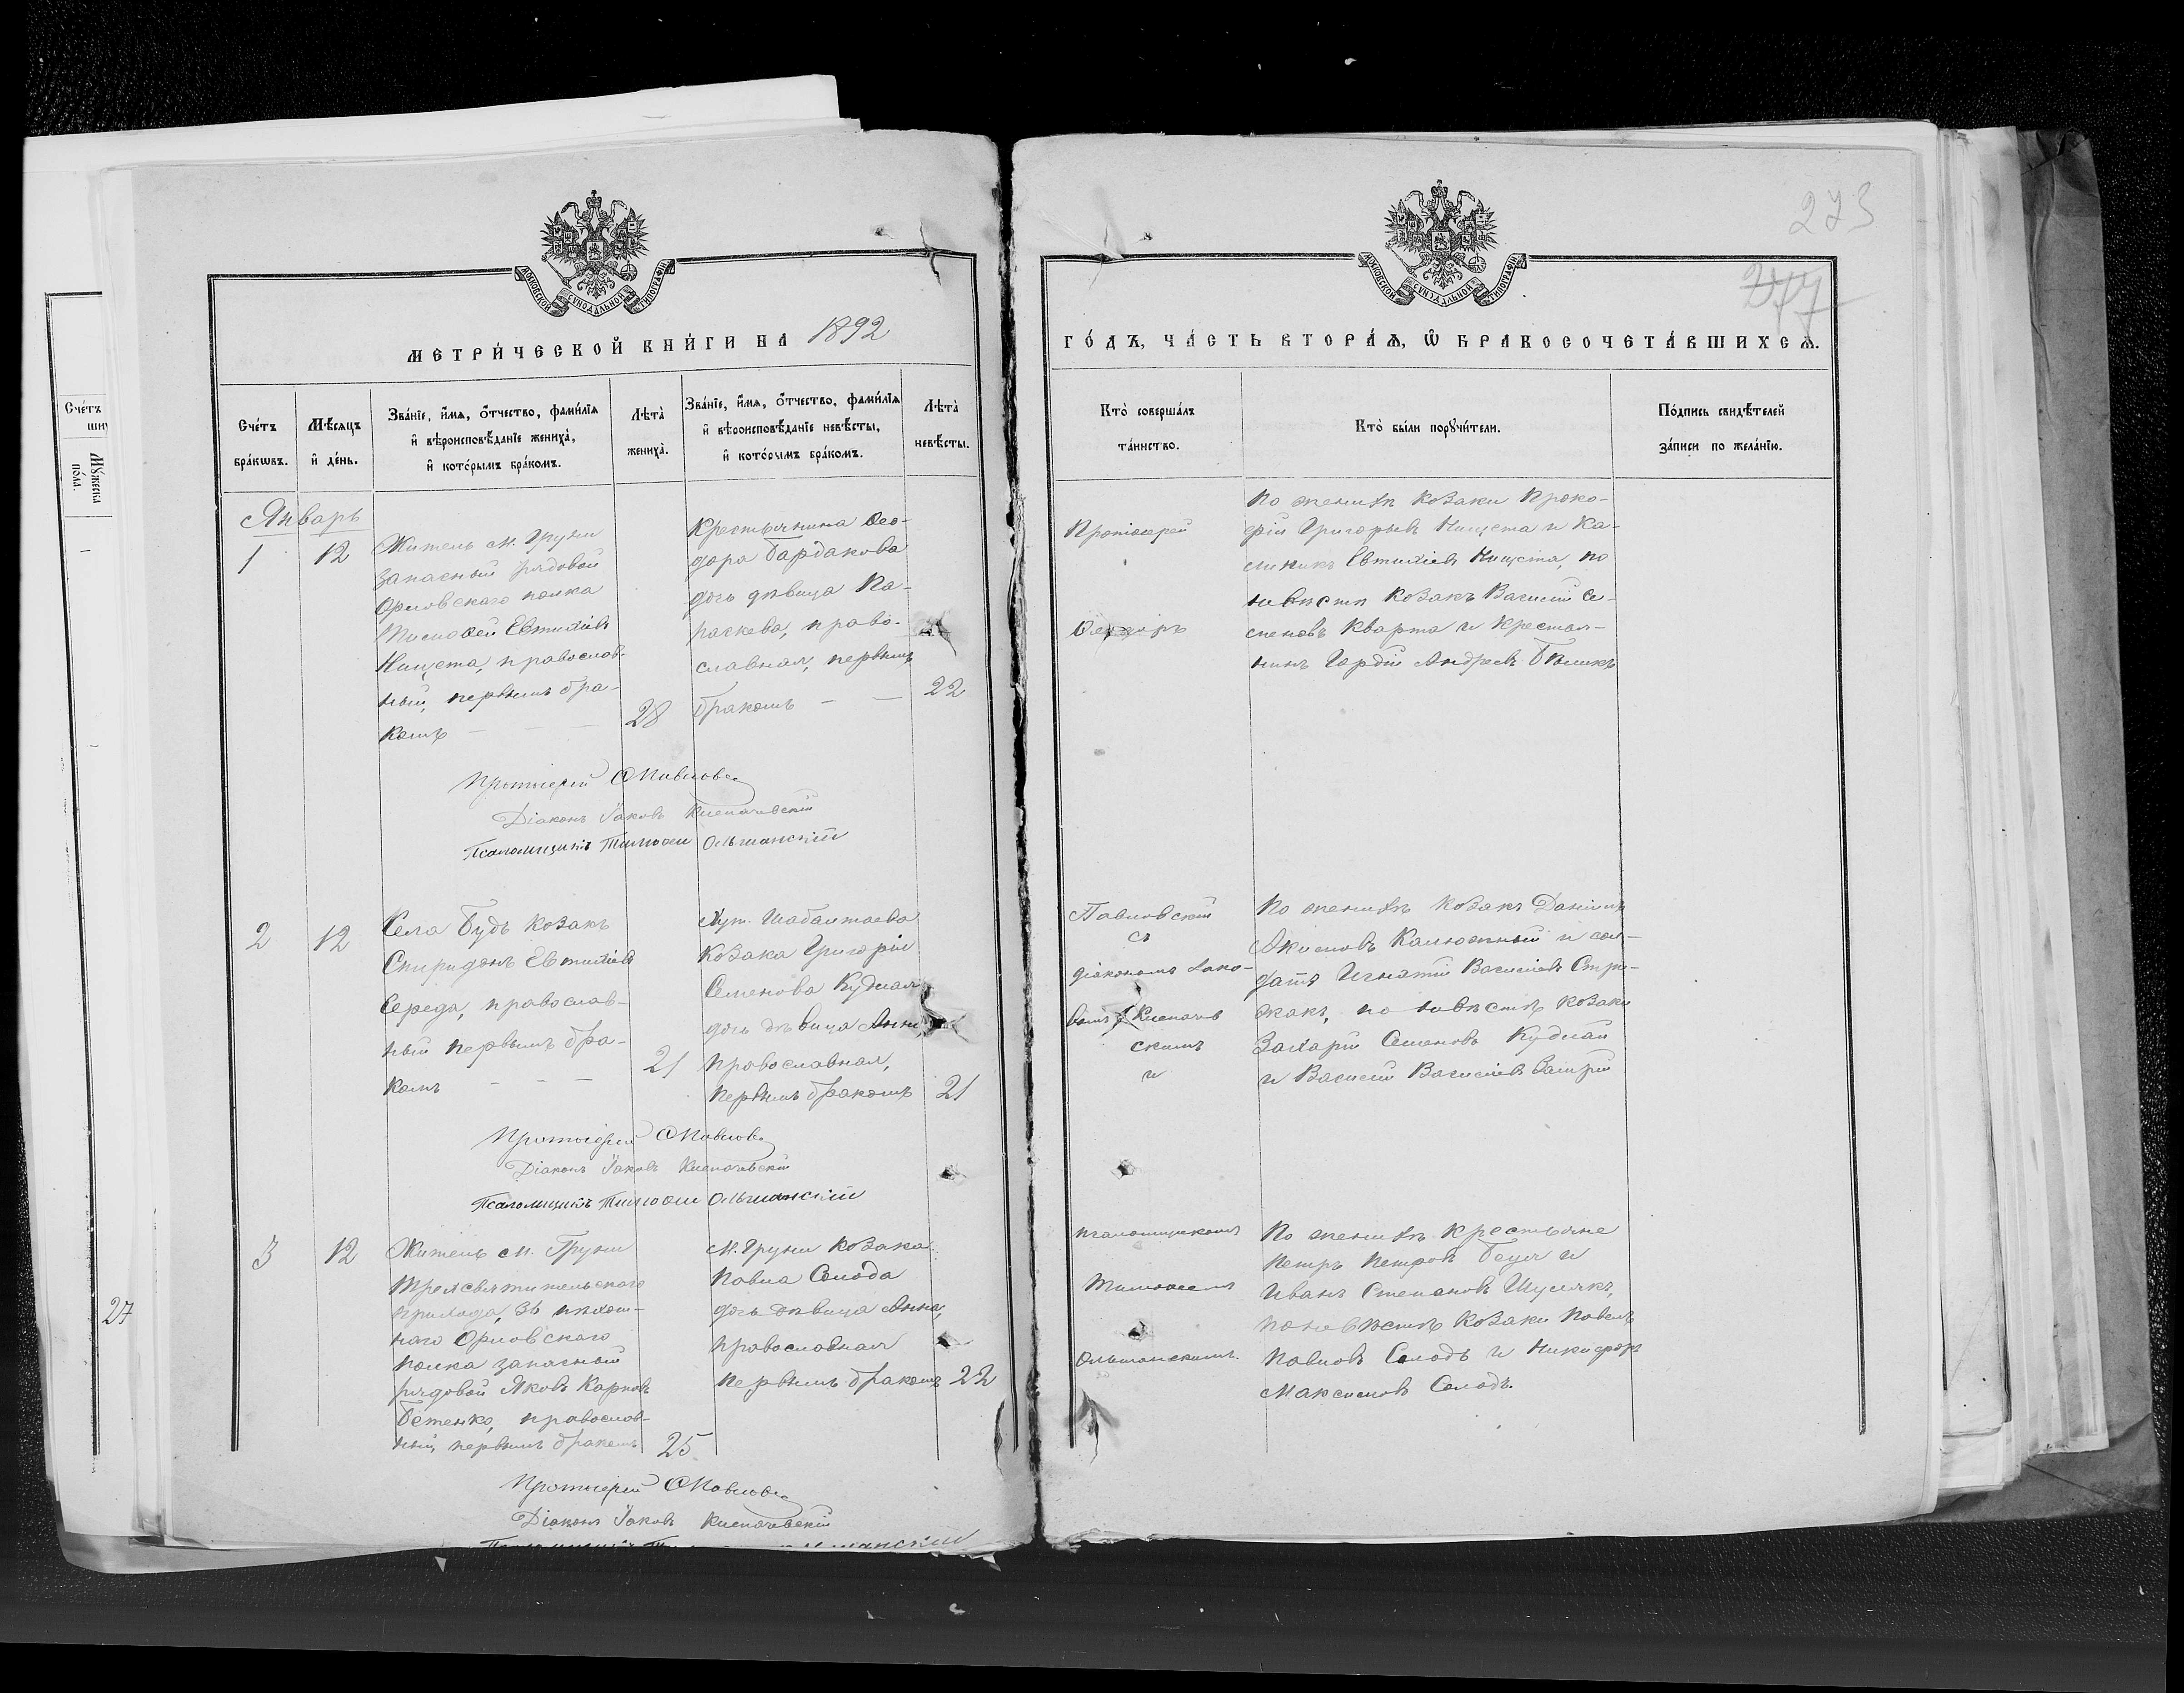 МОСКОВСКОЙ СѴНОДАЛЬНОЙ ТИПОГРАФІИ
МЕТРИ́ЧЕСКОЙ КНИ́ГИ НА 1892
Сче́тъ бра́кѡвъ.
Мѣ́сяцъ и҆ де́нь.
Зва́нїе, и҆́мѧ, ѻ҆́тчество, фами́лїѧ
и҆ вѣроисповѣ́данїе жениха̀,
и҆ кото́рымъ бра́комъ.
Лѣта̀ жениха̀.
Зва́нїе, и҆́мѧ, ѻ҆́тчество, фами́лїѧ
и҆ вѣроисповѣ́данїе невѣ́сты,
и҆ кото́рымъ бра́комъ.
Лѣта̀ невѣ́сты.
Январь
1
12
Житель м. Груни
запасный рядовой
Орловскаго полка
Тимофей Евтихіевъ
Нищета, православ-
ный, первымъ бра-
комъ
28
Крестьянина Ѳео-
дора Бардакова
дочь дѣвица Па-
раскева, право-
славная, первымъ
бракомъ
22
Протоіерей Ѳ Павловс
Діаконъ Іаковъ
Псаломщикъ Тимоѳей Ольшанскій
2
12
Села Будъ козакъ
Спиридонъ Евтихіевъ
Середа, православ-
ный первымъ бра-
комъ
21
Хут.
козака Григорія
Семенова Кудлая
дочь дѣвица Анна
православная,
первымъ бракомъ
21
Протоіерей Ѳ Павловс
Діаконъ Іаковъ
Псаломщикъ Тимоѳей Ольшанскій
3
12
Житель м. Груни
Трехсвятительскаго
прихода, 36 пѣхот-
наго Орловскаго
полка запасный
рядовой Яковъ Карповъ
Бетенко, православ-
ный, первымъ бракомъ
25
м. Груни козака
Павла Солода
дочь дѣвица Анна,
православная
первымъ бракомъ
22
Протоіерей Ѳ Павловс
Діаконъ Іаковъ
27
Сче́тъ
Мꙋ́жеска по́ла.
273
277
МОСКОВСКОЙ СѴНОДАЛЬНОЙ ТИПОГРАФІИ
ГО́ДЪ, ЧА́СТЬ ВТОРА́Ѧ, Ѡ҆ БРАКОСОЧЕТА́ВШИХСѦ.
Кто̀ соверша́лъ
та́инство.
Кто̀ бы́ли порꙋчи́тели.
По́дпись свидѣ́телей
за́писи по жела́нїю.
Протоіерей
Ѳеодоръ
По женихѣ козаки Проко-
фій Григорьевъ Нищета и Ка-
линикъ Евтихіевъ Нищета, по
невѣстѣ козакъ Василій Се-
меновъ Кварта и крестья-
нинъ Гордій Андреевъ Бѣликъ
Павловскій
съ
діакономъ Іако-
вомъ
скимъ
и
По женихѣ козакъ Даніилъ
Акимовъ Калюжный и сол-
датъ Игнатій Васильевъ Стри-
жакъ, по невѣстѣ козаки
Захарій Семеновъ Кудлай
и Василій Васильевъ
псаломщикомъ
Тимоѳеемъ
Ольшанскимъ.
По женихѣ крестьяне
Петръ Петровъ Беця и
Иванъ Степановъ Шулякъ,
по невѣстѣ козаки Павелъ
Павловъ Солодъ и Никифоръ
Максимовъ Солодъ.